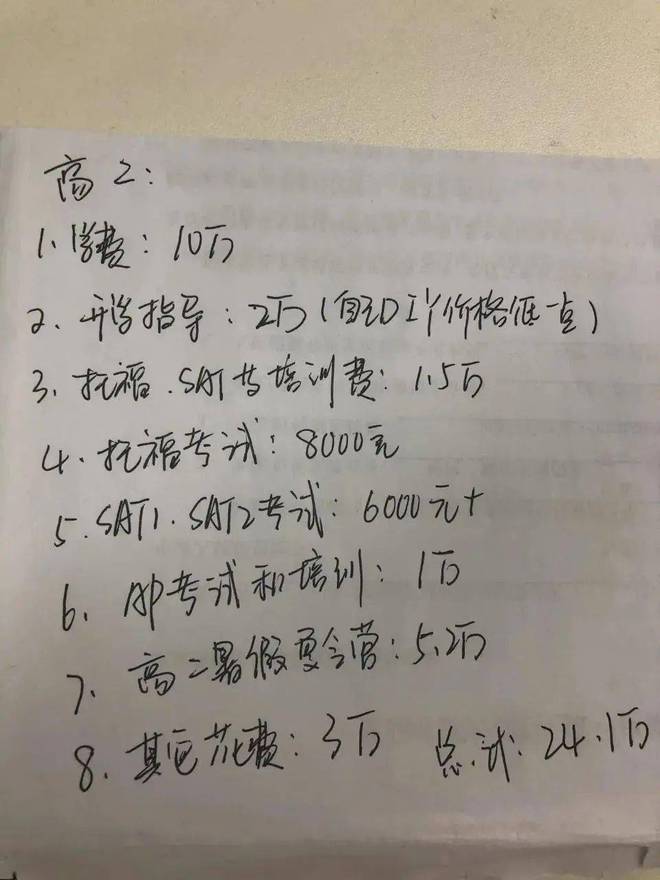 高2:
1. 学费: 10万
2. 升学指导: 2万(自己DIY价格低一点)
3. 托福.SAT等培训费: 1.5万
4. 托福考试: 8000元
5. SAT1.SAT2考试: 6000元+
6. AP考试和培训: 1万
7. 高二暑假夏令营: 5.2万
8. 其它花费: 3万 总计: 24.1万